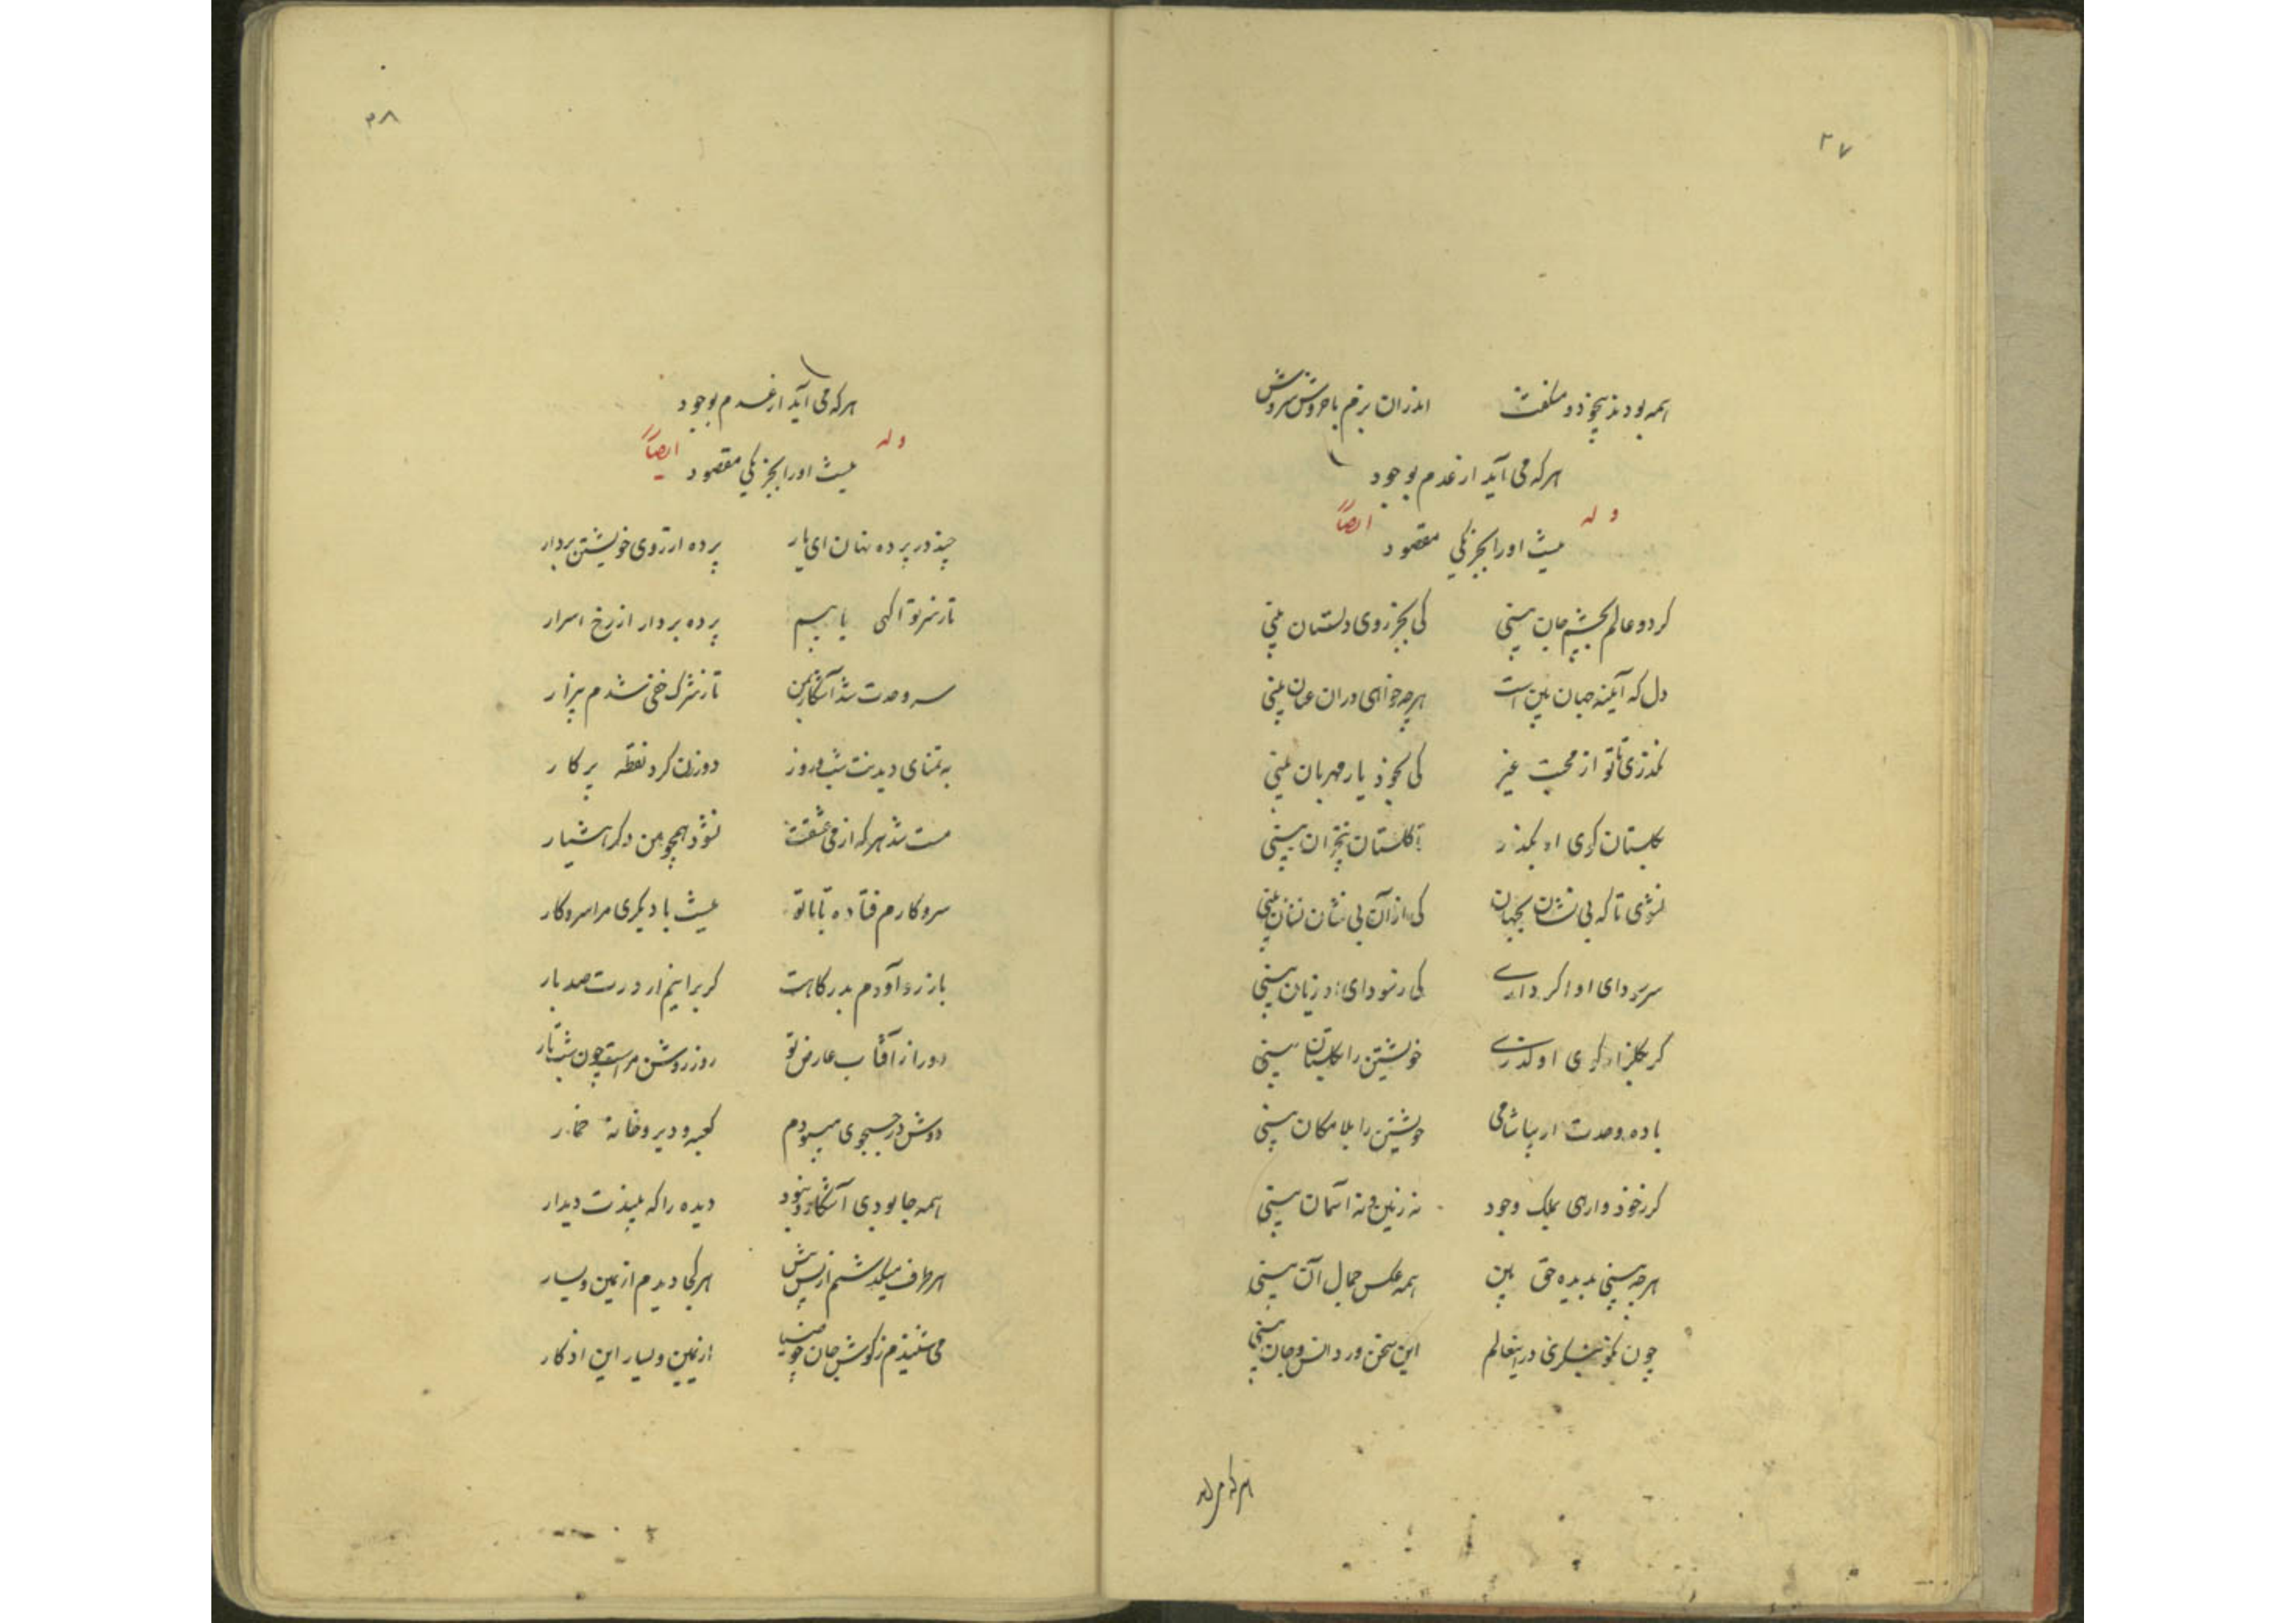 ۳۷
همه بودند بیخود و ملتفت اندران بزم با خروش سروش
هر که می آید از عدم بوجود
وله ایضاً
نیست او را بجز یکی مقصود
گر دو عالم بچشم جان بینی کی بجز روی دلستان بینی
دل که آیینه جهان بین است هرچه خواهی در آن عیان بینی
نگذری تا تو از محبت غیر کی بخود یار مهربان بینی
بگلستان کوی او بگذر تا گلستان بی خزان بینی
نشوی تا که بی نشان بجهان کی از آن بی نشان نشان بینی
سر سودای او اگر داری کی ز سودای او زیان بینی
گر بگلزار کوی او گذری خویشتن را بگلستان بینی
باده وحدت ار بیاشامی خویشتن را بلا مکان بینی
گر ز خود وارهی بملک وجود نه زمین و نه آسمان بینی
هرچه بینی بدیده حق بین همه عکس جمال آن بینی
چون نکو بنگری درین عالم این سخن ورد انس و جان بینی
هر که می آید
۳۸
هر که می آید از عدم بوجود
وله ایضاً
نیست او را بجز یکی مقصود
چند در پرده نهان ای یار پرده از روی خویشتن بردار
تا ز سر تو آگهی یابیم پرده بردار از رخ اسرار
سر وحدت شد آشکار بمن تا ز شرک خفی شدم بیزار
به تمنای دیدنت شب و روز دورزن گرد نقطه پرکار
مست شد هر که از می عشقت نشود همچو من دگر هشیار
سر و کارم فتاده تا با تو نیست با دیگری مرا سر و کار
باز رو آوردم بدرگاهت گر برانیم از درت صد بار
دور از آفتاب عارض تو روز روشن مراست چون شب تار
دوش در جستجوی میبودم کعبه و دیر و خانه خمار
همه جا بودی آشکار و نبود دیده را که بیندت دیدار
هر طرف میگذشتم از پس و پیش هر کجا دیدم از یمین و یسار
می شنیدم ز گوش جان چو ضیا از یمین و یسار این اذکار